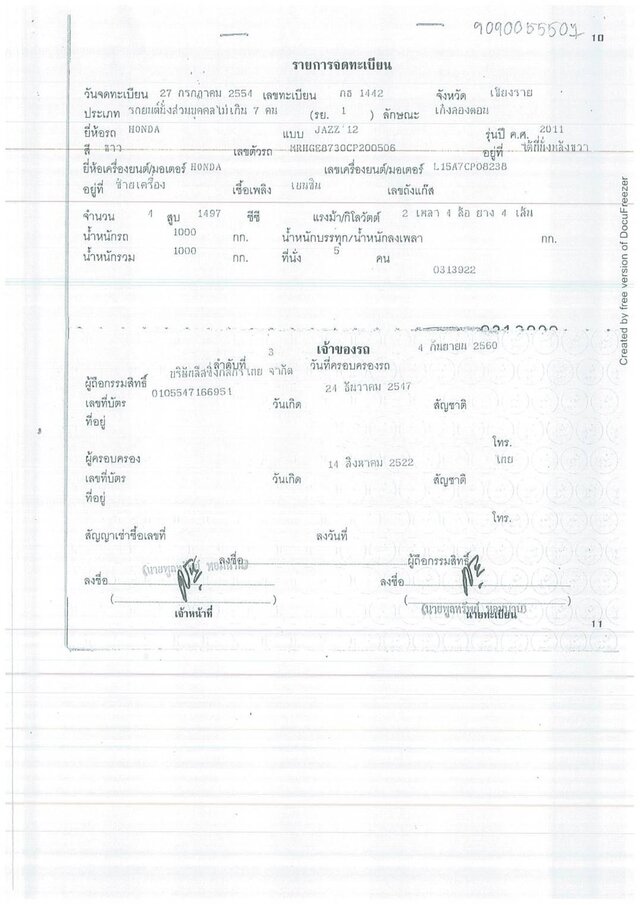 9090055507
10
รายการจดทะเบียน
วันจดทะเบียน 27 กรกฎาคม 2554 เลขทะเบียน กธ 1442 จังหวัด เชียงราย
ประเภท รถยนต์นั่งส่วนบุคคลไม่เกิน 7 คน (รย. 1 ) ลักษณะ เก๋งสองตอน
ยี่ห้อรถ HONDA แบบ JAZZ'12 รุ่นปี ค.ศ. 2011
สี ขาว เลขตัวรถ MRHGE8730CP200506 อยู่ที่ ใต้ที่นั่งหลังขวา
ยี่ห้อเครื่องยนต์/มอเตอร์ HONDA เลขเครื่องยนต์/มอเตอร์ L15A7CP08238
อยู่ที่ ซ้ายเครื่อง เชื้อเพลิง เบนซิน เลขถังแก๊ส
จำนวน 4 สูบ 1497 ซีซี แรงม้า/กิโลวัตต์ 2 เพลา 4 ล้อ ยาง 4 เส้น
น้ำหนักรถ 1000 กก. น้ำหนักบรรทุก/น้ำหนักลงเพลา กก.
น้ำหนักรวม 1000 กก. ที่นั่ง 5 คน
0313922
เจ้าของรถ
ลำดับที่ 3 วันที่ครอบครองรถ 4 กันยายน 2560
ผู้ถือกรรมสิทธิ์ บริษัทลีสซิ่งกสิกรไทย จำกัด
เลขที่บัตร 0105547166951 วันเกิด 24 ธันวาคม 2547 สัญชาติ
ที่อยู่
โทร.
ผู้ครอบครอง
เลขที่บัตร วันเกิด 14 สิงหาคม 2522 สัญชาติ ไทย
ที่อยู่
โทร.
สัญญาเช่าซื้อเลขที่ ลงวันที่
ลงชื่อ ผู้ถือกรรมสิทธิ์
ลงชื่อ ลงชื่อ
เจ้าหน้าที่ นายทะเบียน
11
Created by free version of DocuFreezer